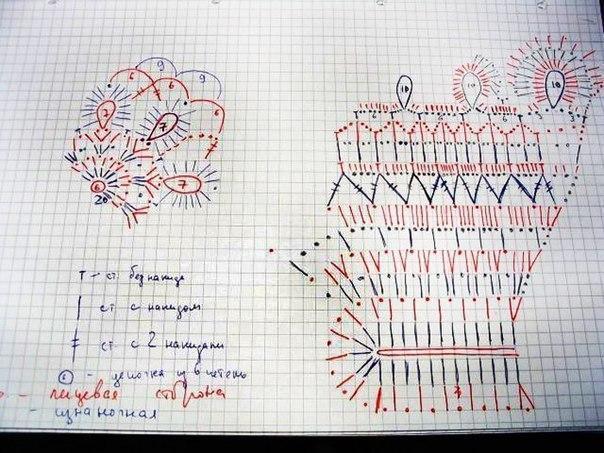 6 9 6 9 6
7
7
6 7
20
10 10 10
6 2 2
Т - ст. без накида
ст с накидом
ст. с 2 накидами
6 - цепочка из петель
- лицевая сторона
- изнаночная